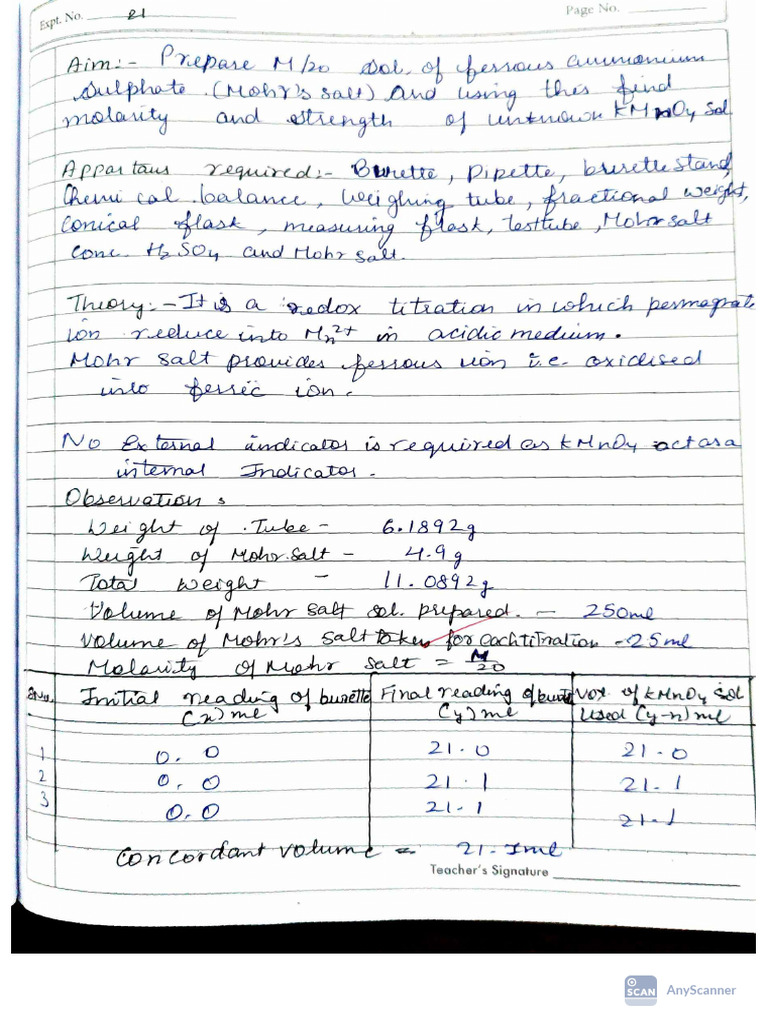 Expt. No. 21
Page No.
Aim:- Prepare M/20 sol. of ferrous ammonium
sulphate (Mohr's salt) and using this find
molarity and strength of unknown KMnO4 sol
Appartaus required:- Burette, Pipette, burette stand,
Chemical balance, weighing tube, fractional weight,
conical flask, measuring flask, testtube, Mohr salt
conc. H2SO4 and Mohr salt.
Theory:- It is a redox titration in which permagnat
ion reduce into Mn2+ in acidic medium.
Mohr salt provides ferrous ion i.e. oxidised
into ferric ion.
No External indicator is required as KMnO4 act as a
internal Indicator.
Observation :
Weight of Tube - 6.1892g
Weight of Mohr salt - 4.9g
Total weight - 11.0892g
Volume of Mohr salt sol. prepared. - 250ml
Volume of Mohr's salt taken for each titration - 25ml
Molarity of Mohr salt = M/20
S.No. Initial reading of burette (x) ml Final reading of burette (y) ml Vol. of KMnO4 sol Used (y-x) ml
1 0.0 21.0 21.0
2 0.0 21.1 21.1
3 0.0 21.1 21.1
Concordant volume = 21.1ml
Teacher's Signature
SCAN AnyScanner